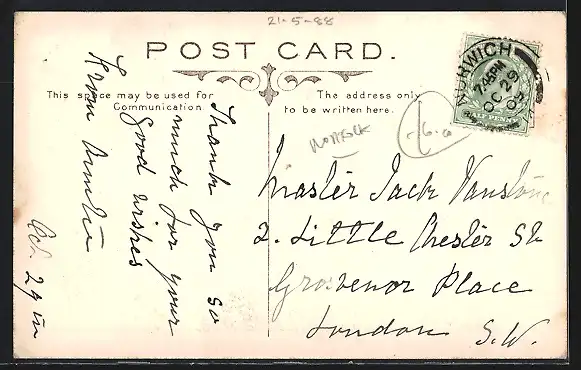 21-5-88
POST CARD.
This space may be used for
Communication.
The address only
to be written here.
NORWICH
7.45PM
OC 29
Norfolk
-6-0
Thank you so
much for your
good wishes
From
Oct. 29th
Master Jack Vanstone
2. Little Chester St.
Grosvenor Place
London S.W.